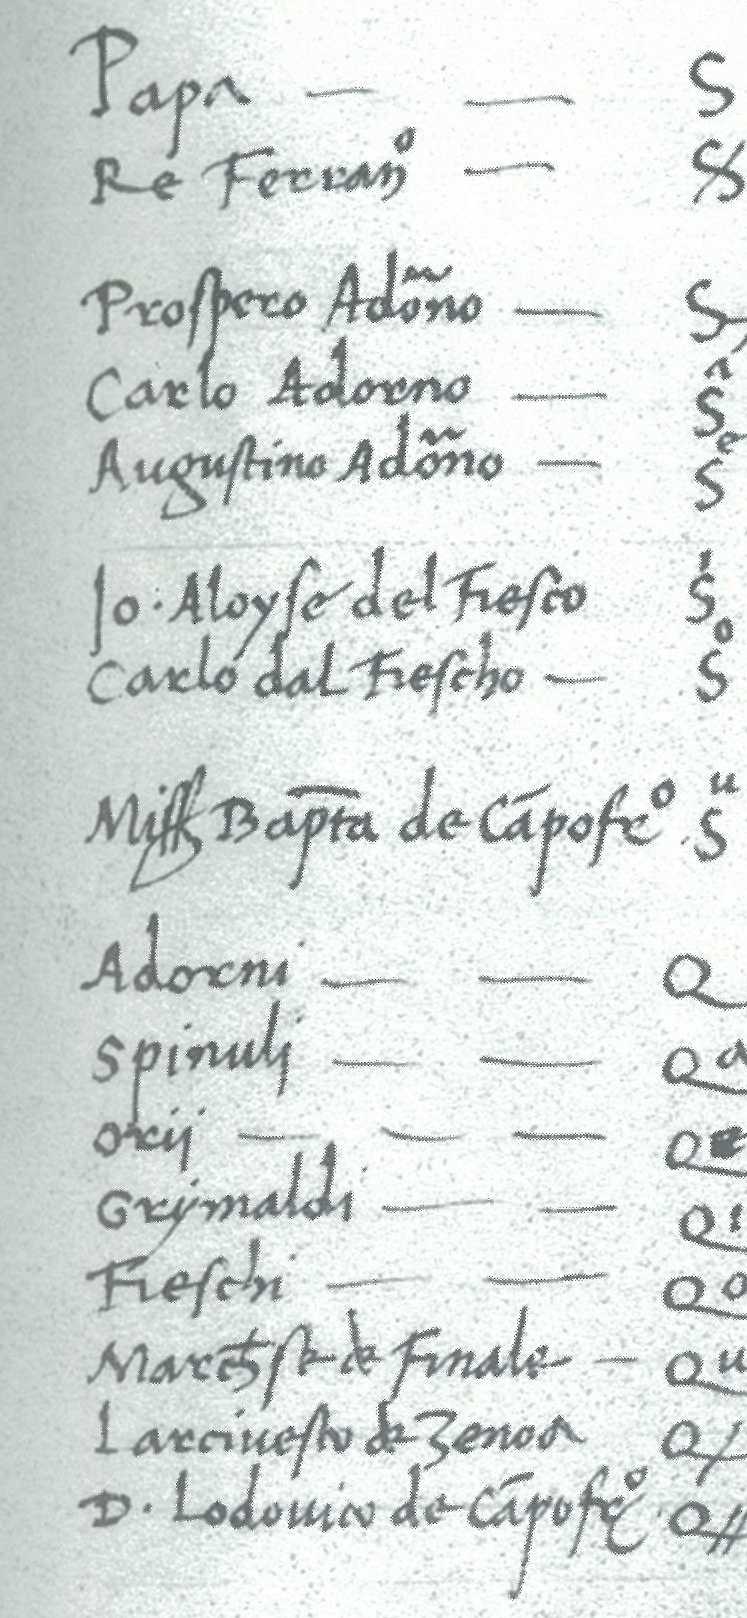 Papa — — S
Re Ferranº — S
Prospero Adõno — S
Carlo Adorno — Sᵃ
Augustino Adõno — Sᵉ
Jo. Aloyse del Fiesco Sⁱ
Carlo dal Fiescho — Sᵒ
Bapta de Cãpofrº Sᵘ
Adorni — — Q
Spinulj — — Qᵃ
Orij — — — Q
Grymaldi — — Qⁱ
Fieschi — — Qᵒ
de Finale — Qᵘ
Larcivesco de Zenoa Q
D. Lodovico de Cãpofrº Q